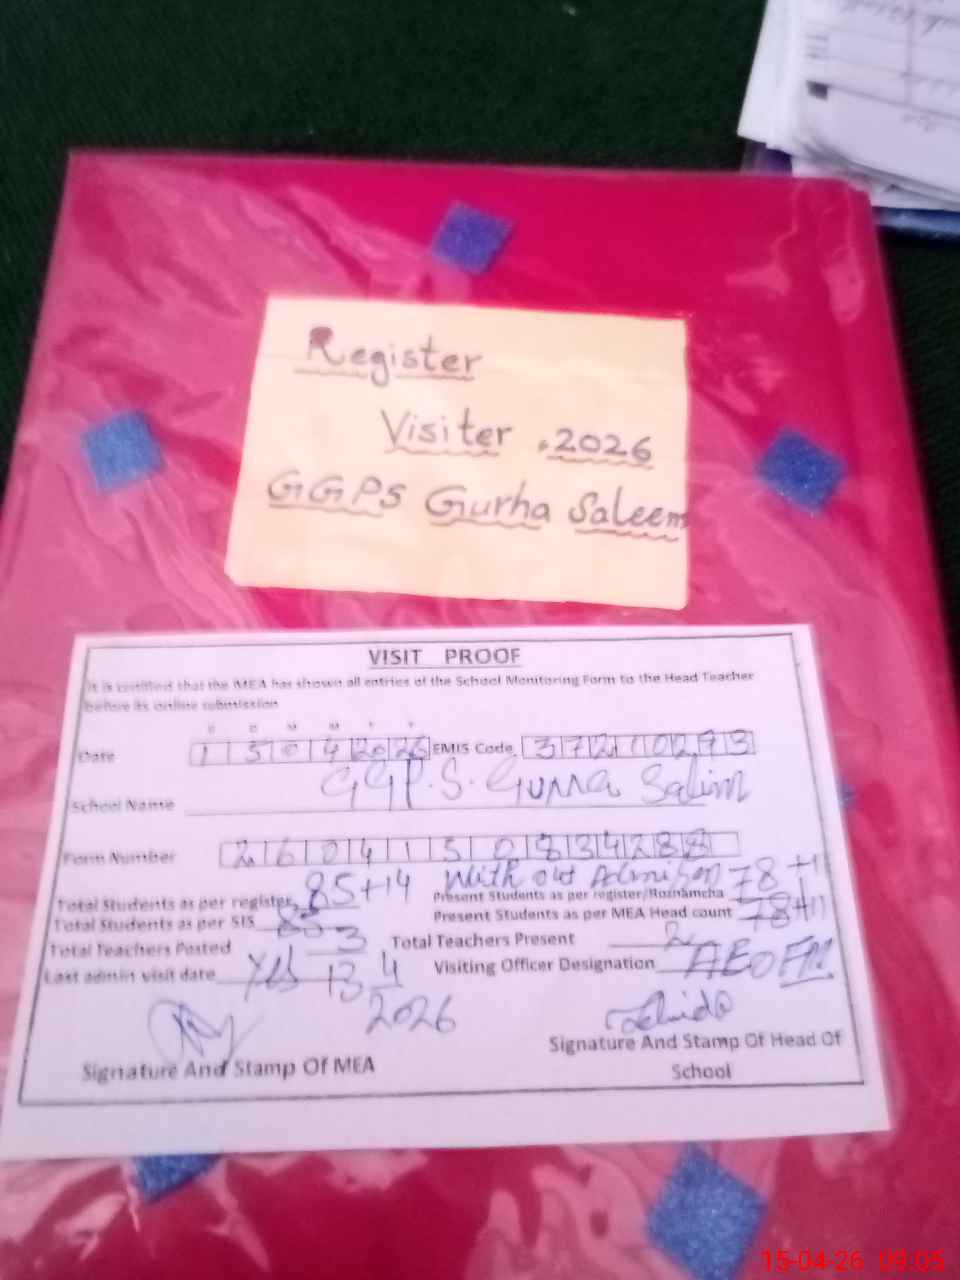 Register
Visiter .2026
GGPS Gurha Saleem
VISIT PROOF
It is certified that the MEA has shown all entries of the School Monitoring Form to the Head Teacher
before its online submission
D D M M Y Y
Date 1 5 0 4 20 26 EMIS Code 3 7 2 1 0 2 9 3
School Name GGP.S. Gurha Salim
Form Number 2 6 0 4 1 5 0 8 3 4 2 8 8
With out Admison
Total Students as per register 85+14 Present Students as per register/Roznamcha 78+11
Total Students as per SIS 85 Present Students as per MEA Head count 78+11
Total Teachers Posted 3 Total Teachers Present 2
Last admin visit date Yes 13 4 2026 Visiting Officer Designation AEO FM
Signature And Stamp Of MEA
Signature And Stamp Of Head Of
School
15-04-26 09:05